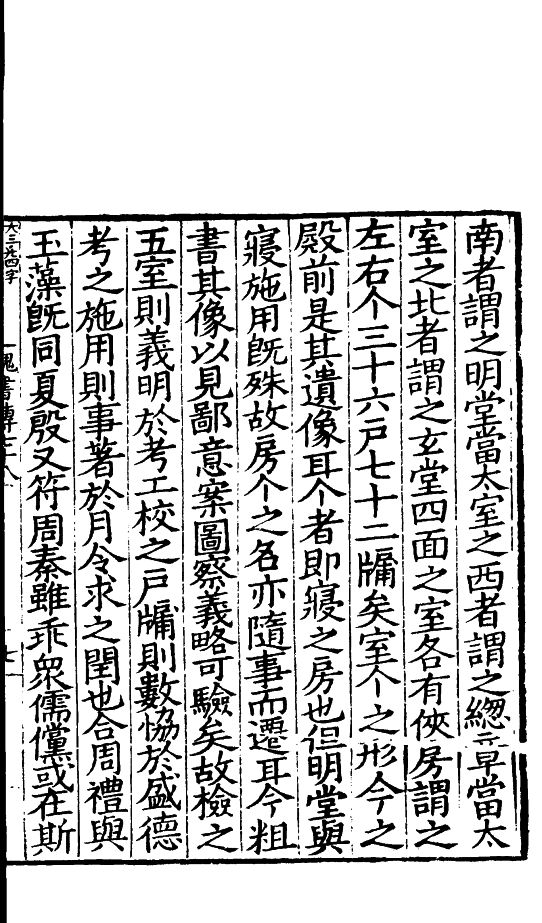 南者謂之明堂當太室之西者謂之緫章當太
室之北者謂之玄堂四面之室各有俠房謂之
左右个三十六戸七十二牖矣室个之形今之
殿前是其遺像耳个者即寢之房也但明堂與
寢施用旣殊故房个之名亦隨事而遷耳今粗
書其像以見鄙意案圖察義略可驗矣故檢之
五室則義明於考工校之戸牖則數恊於盛德
考之施用則事著於月令求之閏也合周禮與
玉藻旣同夏殷又符周秦雖乖衆儒儻或在斯
魏書傳七十八